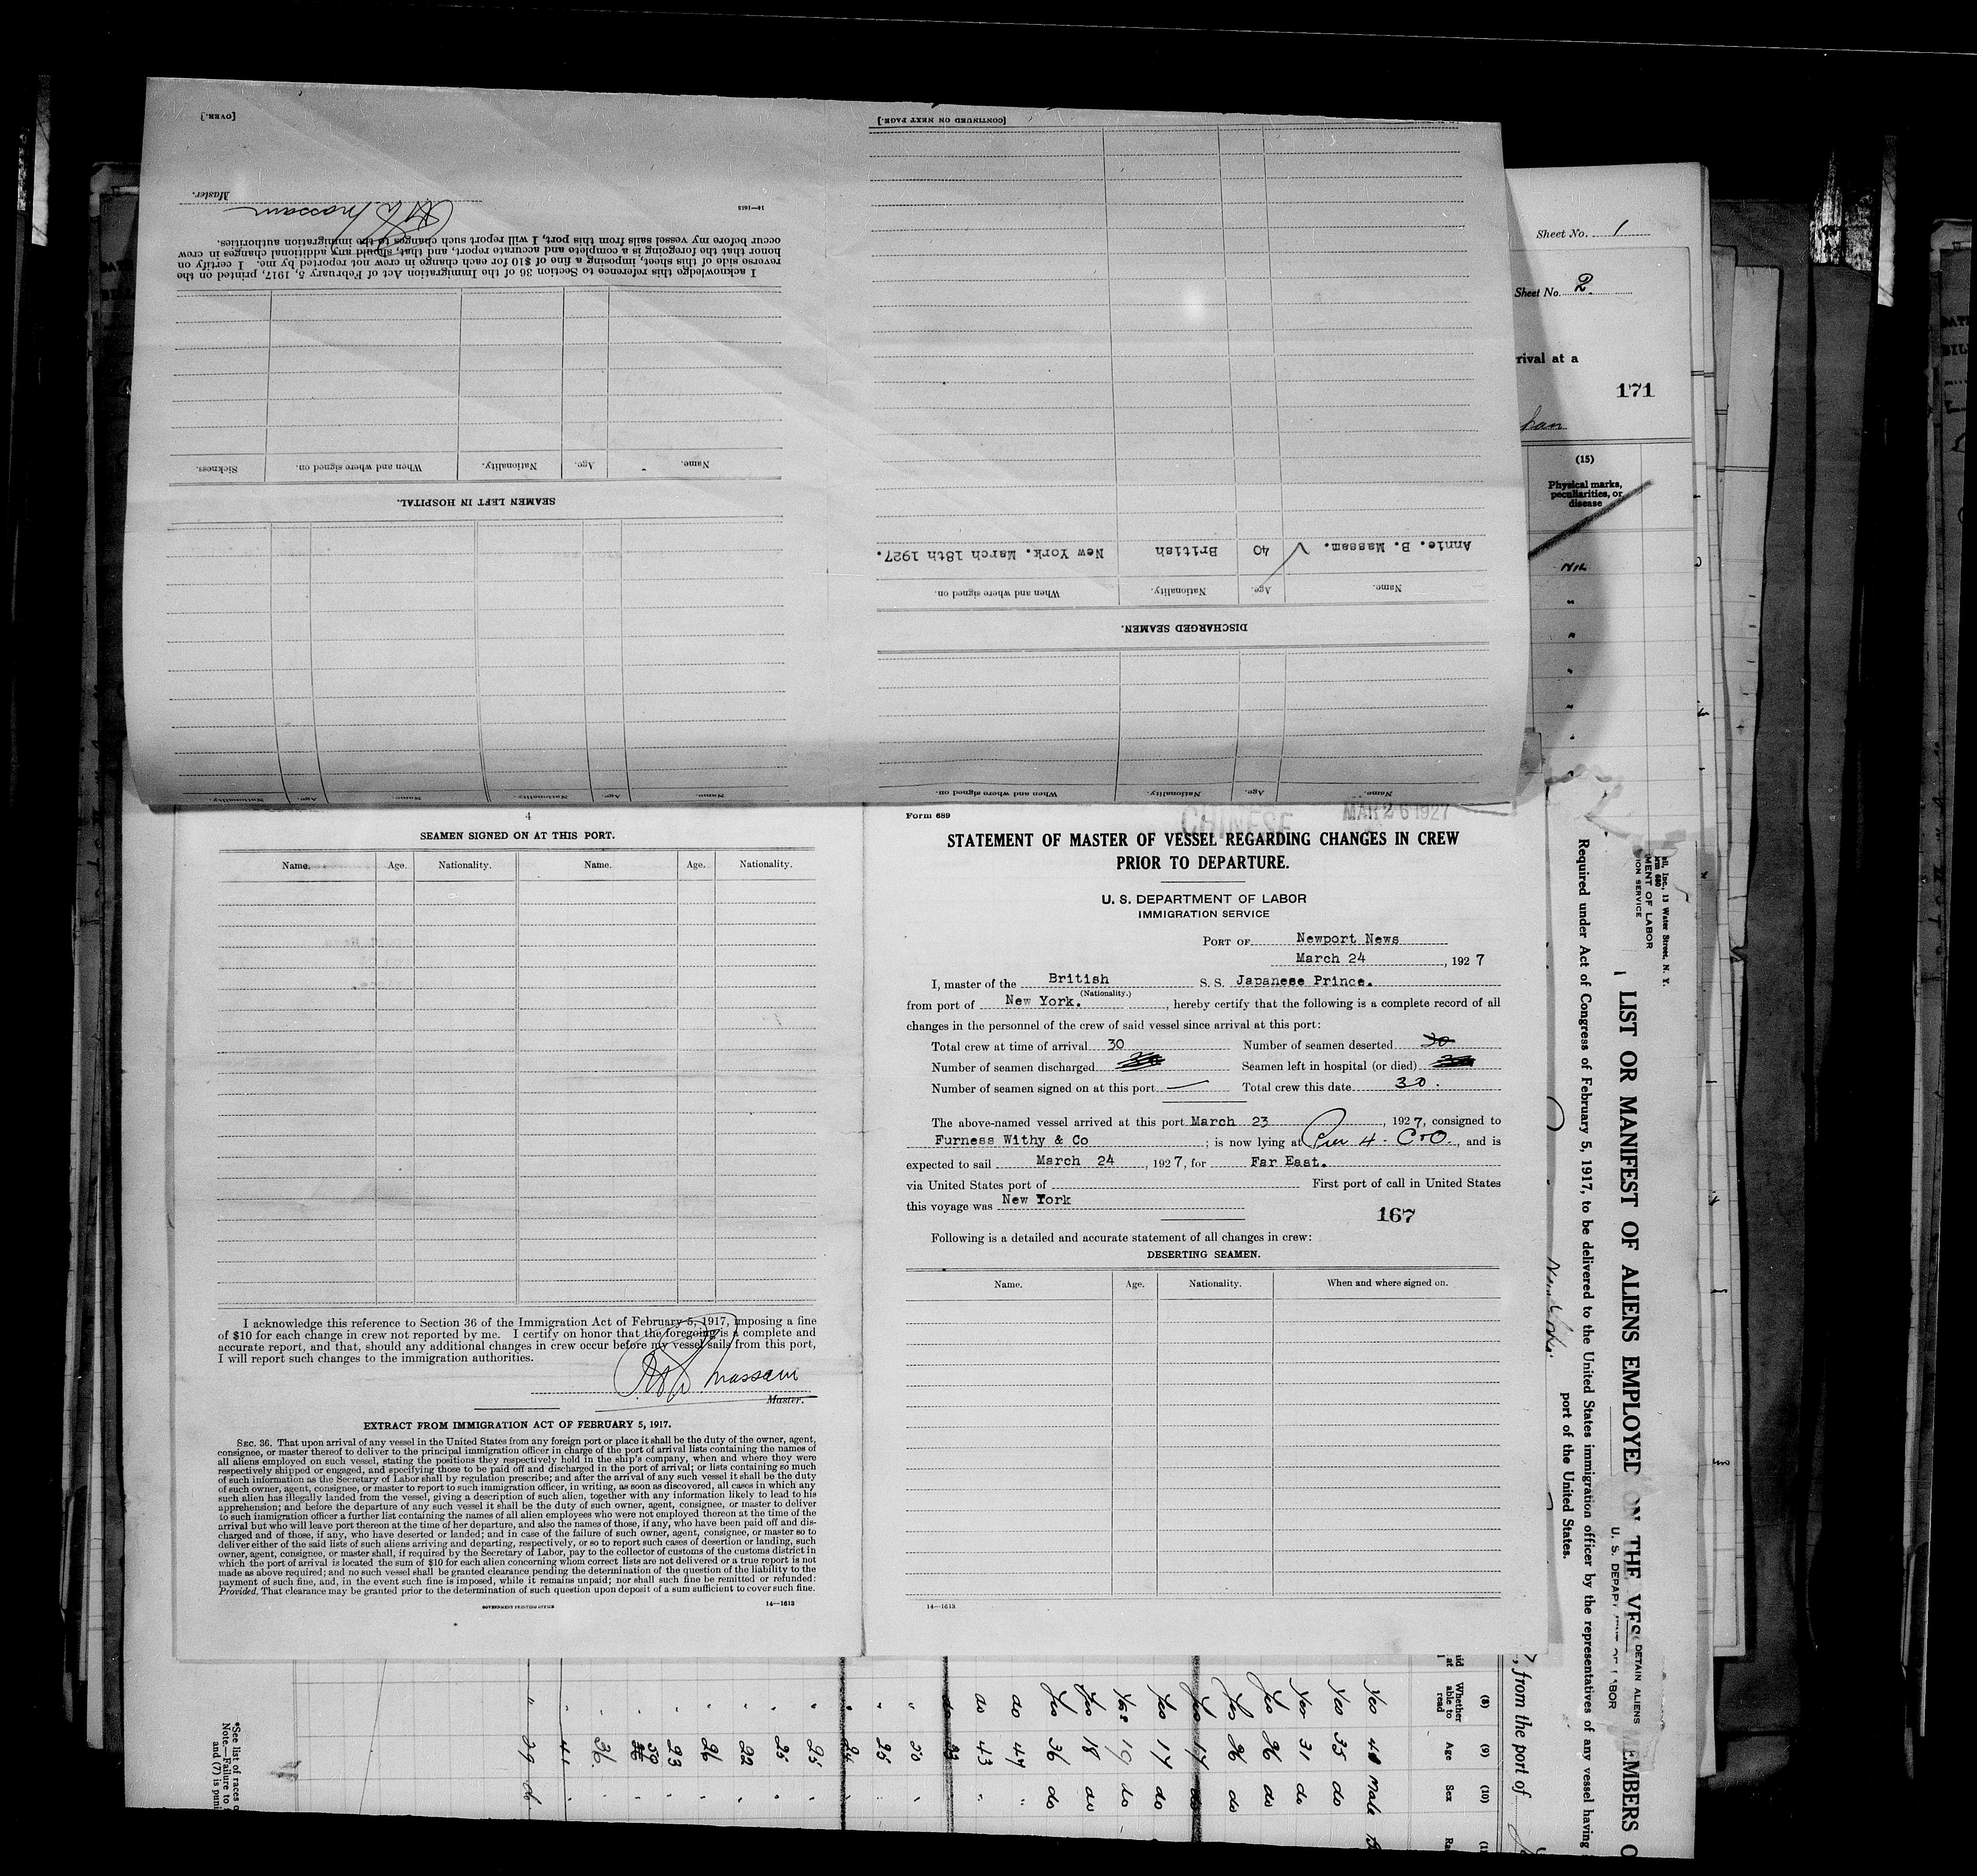 [OVER.]
Master.
16—1613
I acknowledge this reference to Section 36 of the Immigration Act of February 5, 1917, printed on the
reverse side of this sheet, imposing a fine of $10 for each change in crew not reported by me. I certify on
honor that the foregoing is a complete and accurate report, and that, should any additional changes in crew
occur before my vessel sails from this port, I will report such changes to the immigration authorities.
Massam
SEAMEN LEFT IN HOSPITAL.
Name. Age. Nationality. When and where signed on. Sickness.
Name. Age. Nationality. Name. Age. Nationality.
Name. Age. Nationality. When and where signed on.
DISCHARGED SEAMEN.
Name. Age. Nationality. When and where signed on.
Annie. B. Massam. ✓ 40 British New York. March 18th 1927.
[CONTINUED ON NEXT PAGE.]
Sheet No. 1
Sheet No. 2.
rival at a
171
(15)
Physical marks,
peculiarities, or
disease
Nil
4
SEAMEN SIGNED ON AT THIS PORT.
Name. Age. Nationality. Name. Age. Nationality.
I acknowledge this reference to Section 36 of the Immigration Act of February 5, 1917, imposing a fine
of $10 for each change in crew not reported by me. I certify on honor that the foregoing is a complete and
accurate report, and that, should any additional changes in crew occur before my vessel sails from this port,
I will report such changes to the immigration authorities.
Massam
Master.
EXTRACT FROM IMMIGRATION ACT OF FEBRUARY 5, 1917.
SEC. 36. That upon arrival of any vessel in the United States from any foreign port or place it shall be the duty of the owner, agent,
consignee, or master thereof to deliver to the principal immigration officer in charge of the port of arrival lists containing the names of
all aliens employed on such vessel, stating the positions they respectively hold in the ship's company, when and where they were
respectively shipped or engaged, and specifying those to be paid off and discharged in the port of arrival; or lists containing so much
of such information as the Secretary of Labor shall by regulation prescribe; and after the arrival of any such vessel it shall be the duty
of such owner, agent, consignee, or master to report to such immigration officer, in writing, as soon as discovered, all cases in which any
such alien has illegally landed from the vessel, giving a description of such alien, together with any information likely to lead to his
apprehension; and before the departure of any such vessel it shall be the duty of such owner, agent, consignee, or master to deliver
to such immigration officer a further list containing the names of all alien employees who were not employed thereon at the time of the
arrival but who will leave port thereon at the time of her departure, and also the names of those, if any, who have been paid off and dis-
charged and of those, if any, who have deserted or landed; and in case of the failure of such owner, agent, consignee, or master so to
deliver either of the said lists of such aliens arriving and departing, respectively, or so to report such cases of desertion or landing, such
owner, agent, consignee, or master shall, if required by the Secretary of Labor, pay to the collector of customs of the customs district in
which the port of arrival is located the sum of $10 for each alien concerning whom correct lists are not delivered or a true report is not
made as above required; and no such vessel shall be granted clearance pending the determination of the question of the liability to the
payment of such fine, and, in the event such fine is imposed, while it remains unpaid; nor shall such fine be remitted or refunded:
Provided, That clearance may be granted prior to the determination of such question upon deposit of a sum sufficient to cover such fine.
GOVERNMENT PRINTING OFFICE
14—1613
Form 689
CHINESE
MAR 26 1927
STATEMENT OF MASTER OF VESSEL REGARDING CHANGES IN CREW
PRIOR TO DEPARTURE.
U. S. DEPARTMENT OF LABOR
IMMIGRATION SERVICE
PORT OF Newport News
March 24, 1927
I, master of the British S. S. Japanese Prince.
(Nationality.)
from port of New York., hereby certify that the following is a complete record of all
changes in the personnel of the crew of said vessel since arrival at this port:
Total crew at time of arrival 30 Number of seamen deserted 30
Number of seamen discharged Seamen left in hospital (or died)
Number of seamen signed on at this port — Total crew this date 30.
The above-named vessel arrived at this port March 23, 1927, consigned to
Furness Withy & Co; is now lying at Pier 4. C&O., and is
expected to sail March 24, 1927, for Far East.
via United States port of First port of call in United States
this voyage was New York
167
Following is a detailed and accurate statement of all changes in crew:
DESERTING SEAMEN.
Name. Age. Nationality. When and where signed on.
14—1613
13 Water Street, N. Y.
MENT OF LABOR
ION SERVICE
LIST OR MANIFEST OF ALIENS EMPLOYED ON THE VES
EMBERS O
DETAIN ALIENS
Required under Act of Congress of February 5, 1917, to be delivered to the United States immigration officer by the representatives of any vessel having
port of the United States.
, from the port of
(8) (9) (10)
Whether able to read Age Sex
Yes 48 Male
Yes 35 do
Yes 31 do
Yes 36 do
Yes 36 do
Yes 17 do
Yes 17 do
Yes 19 do
Yes 18 do
Yes 36 do
do 44 "
do 43 "
*See list of races
Note.—Failure to
and (7) is puni